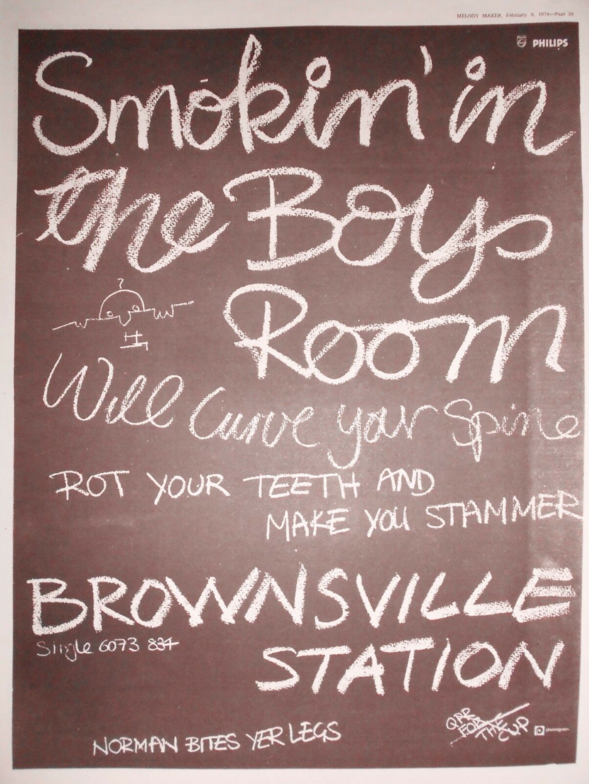 MELODY MAKER, February 9, 1974—Page 29
PHILIPS
Smokin' in
the Boys
Room
Will Curve your Spine
ROT YOUR TEETH AND
MAKE YOU STAMMER
BROWNSVILLE
Single 6073 834
STATION
NORMAN BITES YER LEGS
QPR
FOR THE
CUP